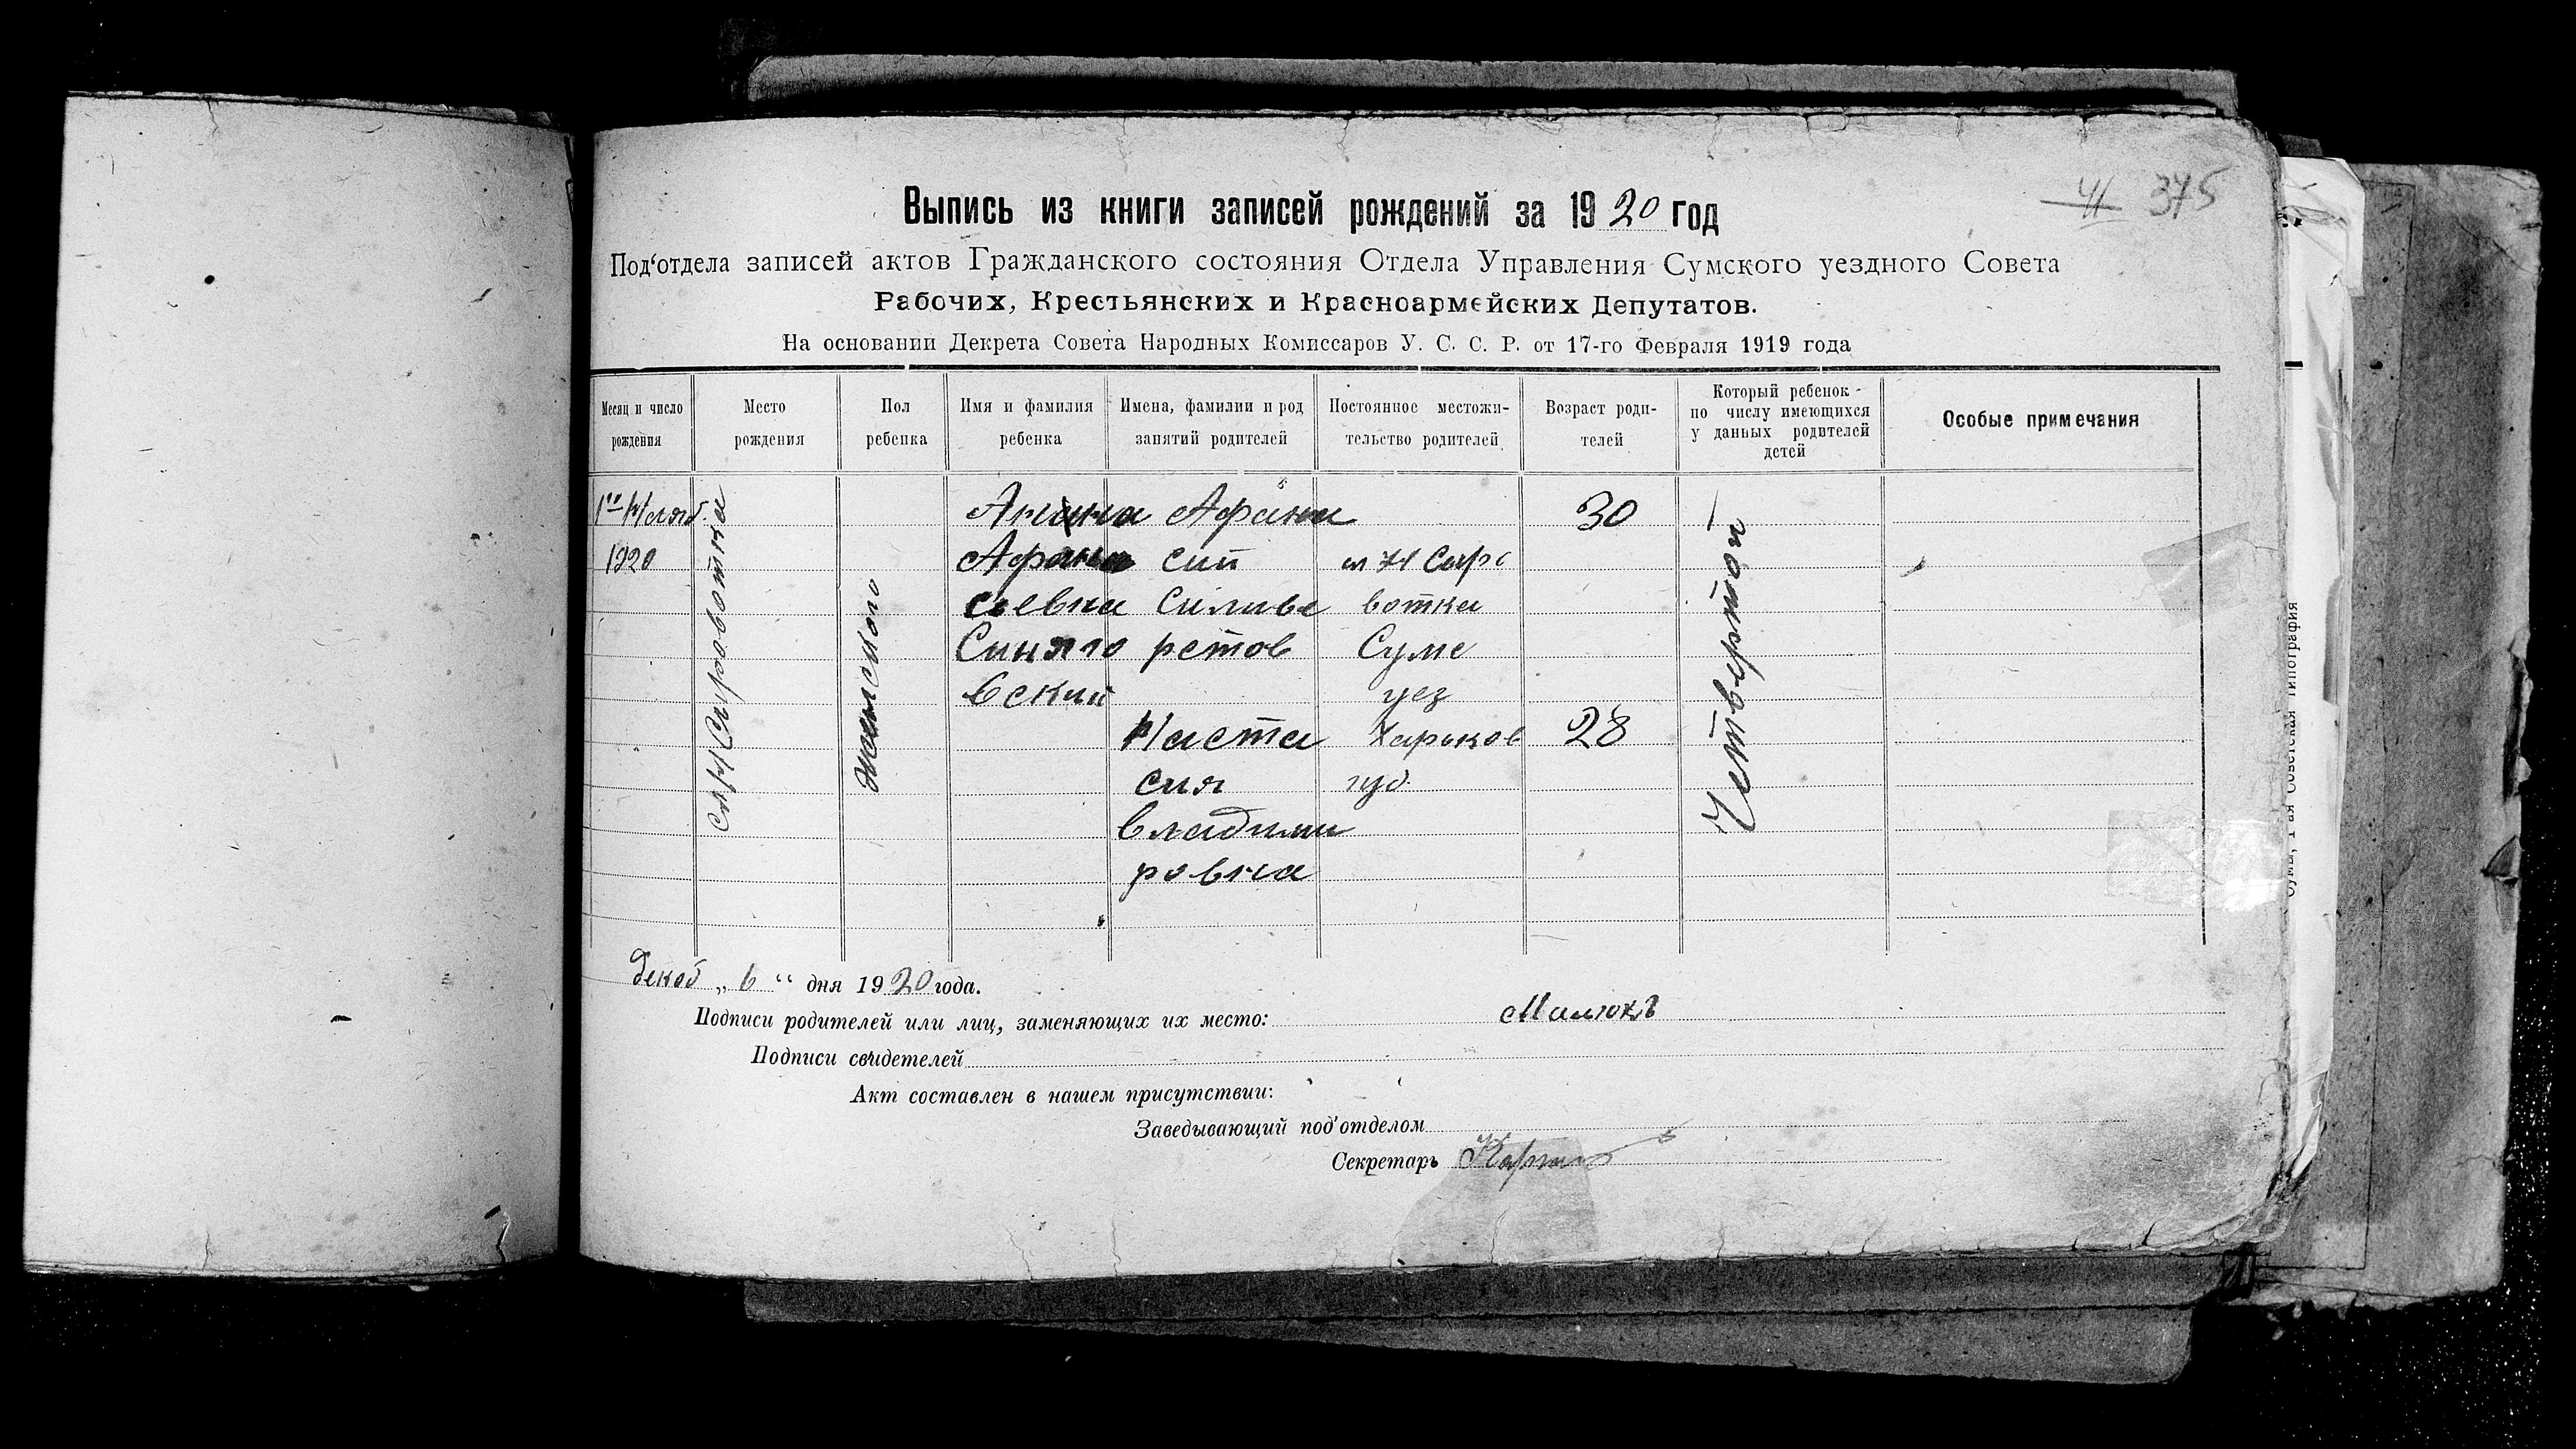 41 375
Выпись из книги записей рождений за 1920 год
Под‘отдела записей актов Гражданского состояния Отдела Управления Сумского уездного Совета
Рабочих, Крестьянских и Красноармейских Депутатов.
На основании Декрета Совета Народных Комиссаров У. С. С. Р. от 17-го Февраля 1919 года
Месяц и число рождения
Место рождения
Пол ребенка
Имя и фамилия ребенка
Имена, фамилии и род занятий родителей
Постоянное местожи-
тельство родителей
Возраст роди-
телей
Который ребенок
по числу имеющихся
у данных родителей
детей
Особые примечания
1го Нояб.
1920
Сл Н Сыроватка
женского
Анна
Афана
сьевна
Синяго
вский
Афана
сий
Сильве
стров
Наста
сия
Владими
ровна
сл Н Сыро
ватка
Сумс
уез
Харьков
губ.
30
28
Четвертой
Декаб „ 6 “ дня 1920 года.
Подписи родителей или лиц, заменяющих их место: Малюкъ
Подписи свидетелей
Акт составлен в нашем присутствии:
Заведывающий под‘отделом
Секретарь
Сумы, 1-ая Советская типография